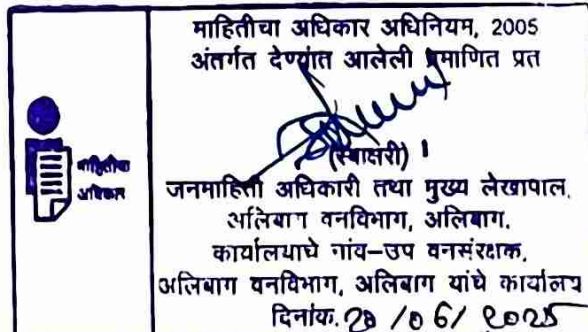 माहितीचा अधिकार अधिनियम, 2005
अंतर्गत देण्यात आलेली प्रमाणित प्रत
माहितीचा
अधिकार
(स्वाक्षरी)
जनमाहिती अधिकारी तथा मुख्य लेखापाल,
अलिबाग वनविभाग, अलिबाग.
कार्यालयाचे गांव-उप वनसंरक्षक,
अलिबाग वनविभाग, अलिबाग यांचे कार्यालय
दिनांक. /06/